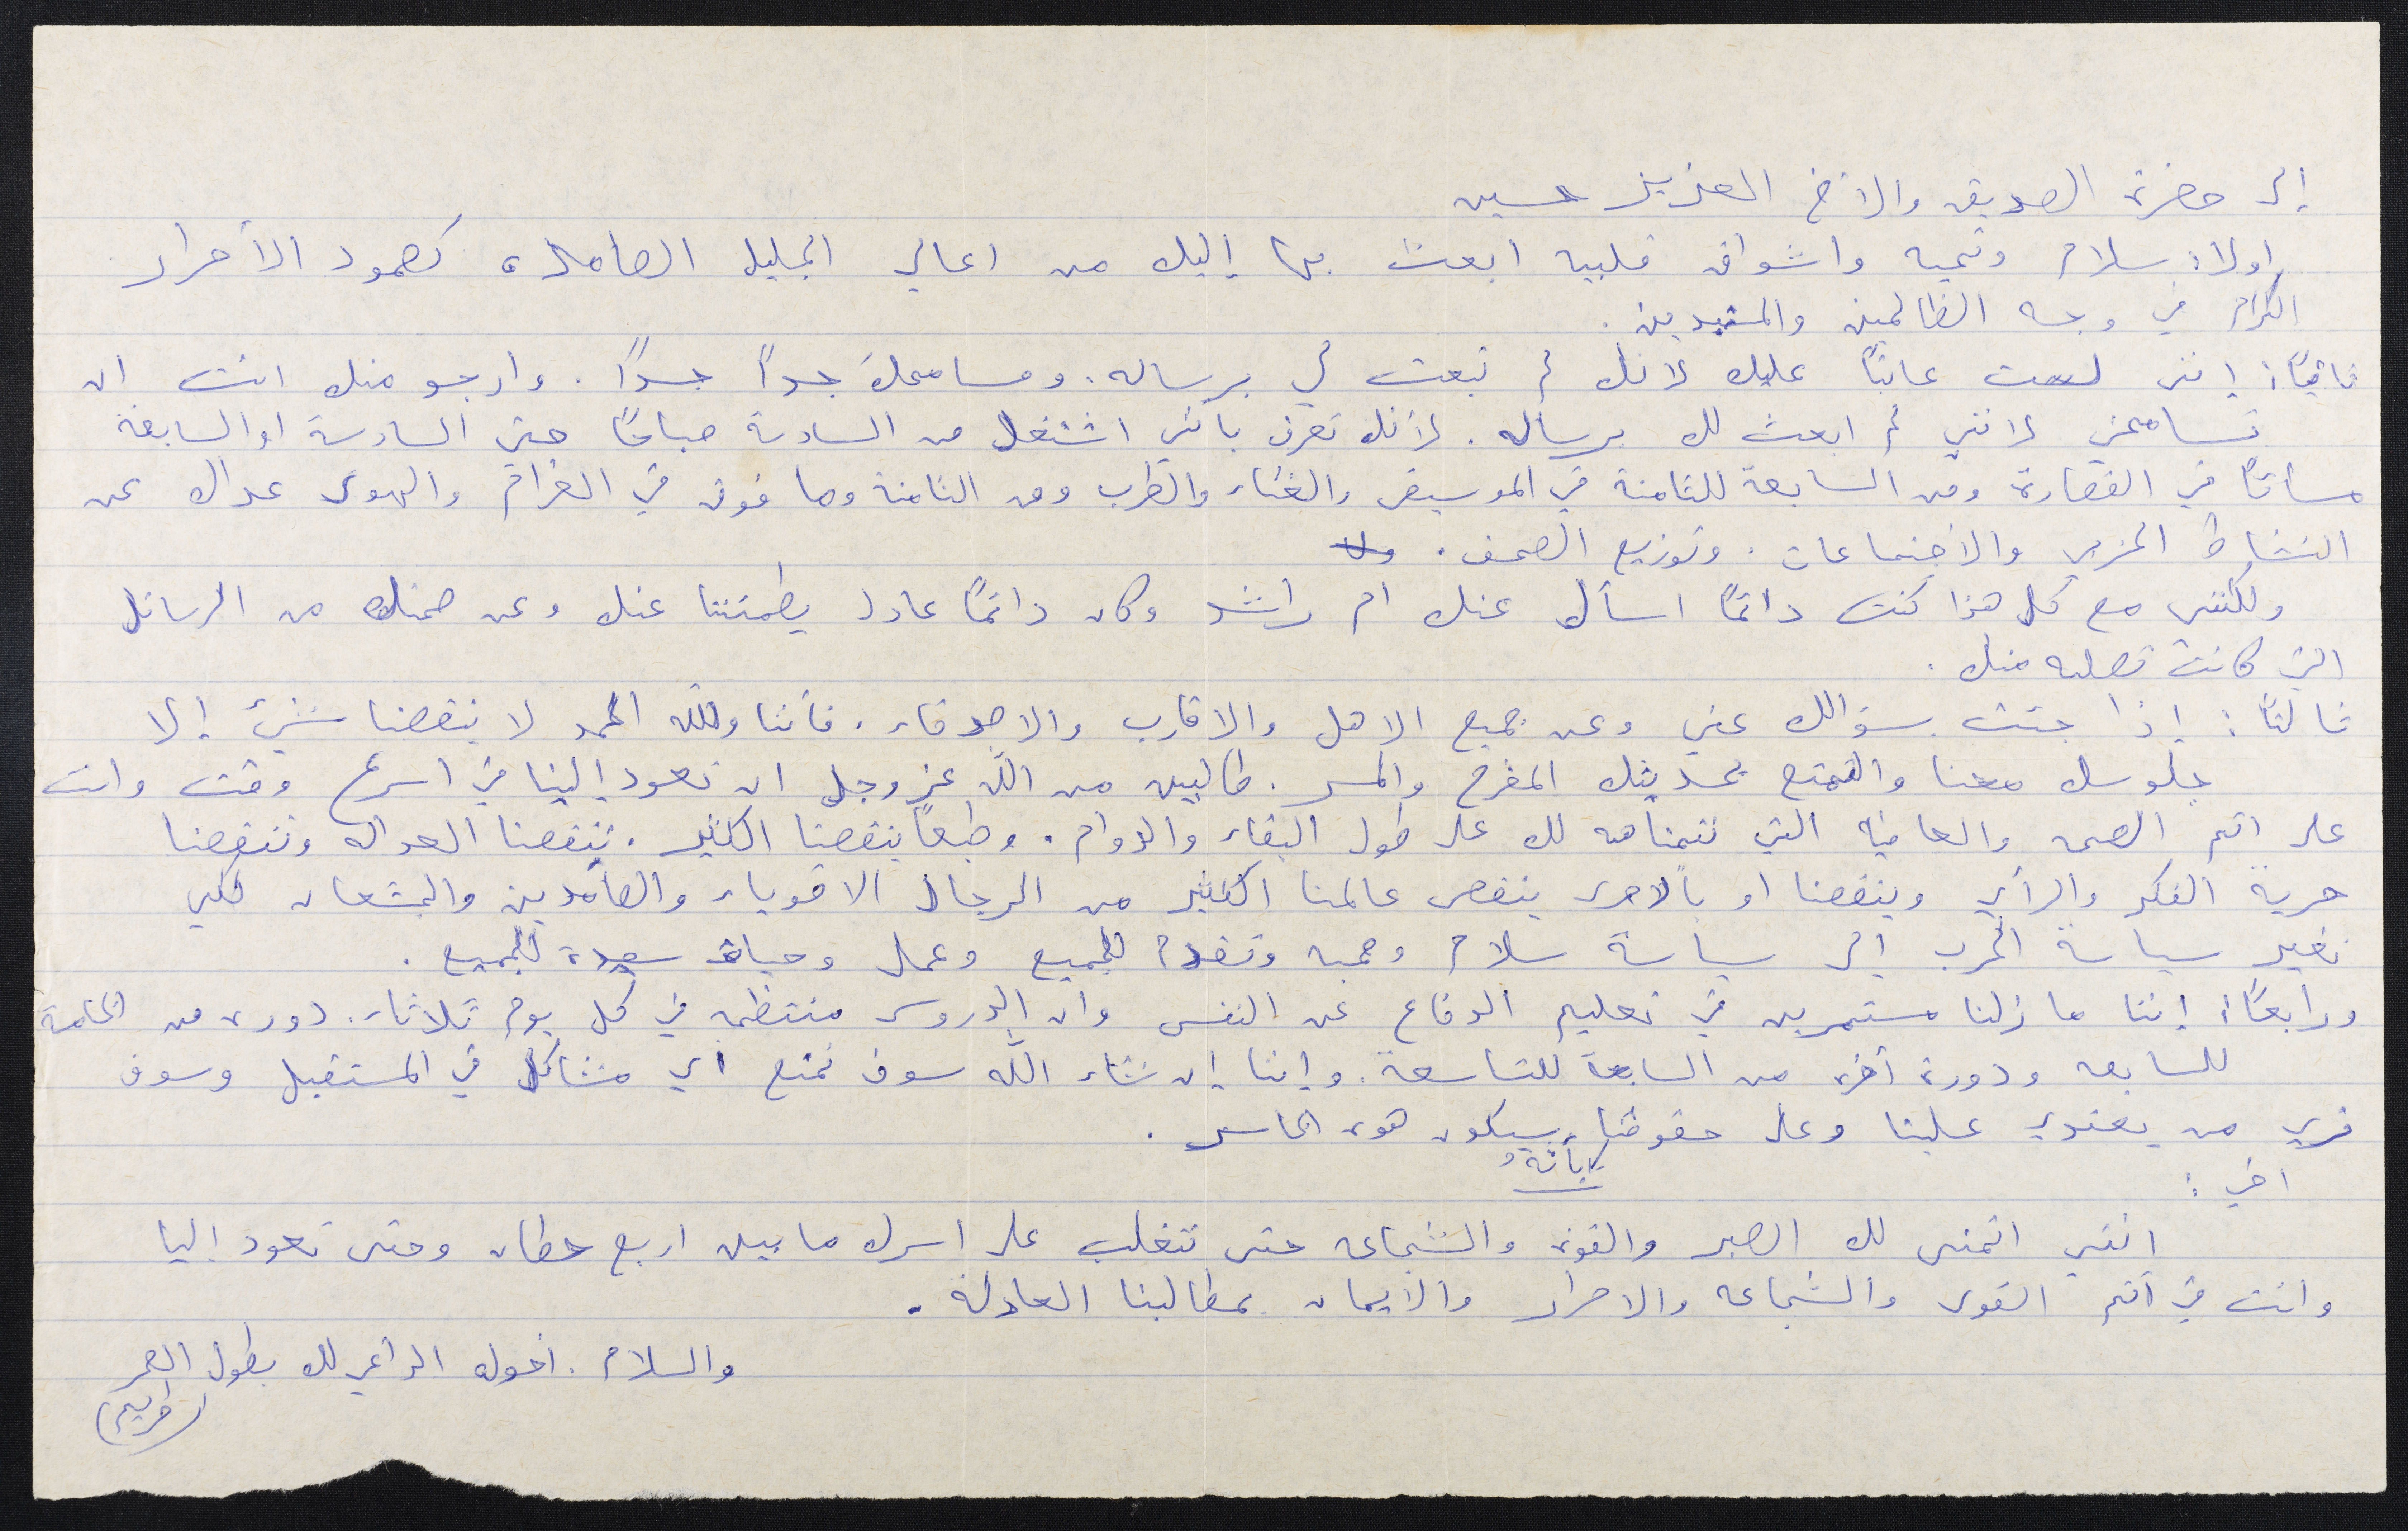 إلى حضرة الصديق والأخ العزيز حسين
اولاً: سلام وتحيه واشواق قلبيه ابعث بها إليك من اعالي الجليل الصامدة كصمود الأحرار
الكرام في وجه الظالمين والمستبدين.
ثانياً: إنني لست عاتباً عليك لانك لم تبعث لي برساله. ومسامحك جداً جداً. وارجو منك انت ان
تسامحني لانني لم ابعث لك برساله. لأنك تعرف بانني اشتغل من السادسة صباحًا حتى السادسة او السابعة
مساءًا في القصارة ومن السابعة للثامنة في الموسيقى والغناء والطرب ومن الثامنة وما فوق في الغرام والهوى عداك عن
النشاط الحزبي والاجتماعات. وتوزيع الصحف.
ولكنني مع كل هذا كنت دائمًا اسأل عنك ام راشد وكان دائمًا عادل يطمئننا عنك وعن صحتك من الرسائل
التي كانت تصله منك.
ثالثاً: إذا جئت بسؤالك عني وعن جميع الاهل والاقارب والاصدقاء. فأننا ولله الحمد لا ينقصنا شيئ إلا
جلوسك معنا والتمتع بحديثك المفرح والمسر. طالبين من الله عز وجل ان تعود إلينا في اسرع وقت وانت
على اتم الصحه والعافيه التي نتمناهه لك على طول البقاء والدوام. وطبعاً ينقصنا الكثير. تنقصنا العداله وتنقصنا
حرية الفكر والرأي وينقصنا او بالاحرى ينقص عالمنا الكثير من الرجال الاقوياء والصامدين والشجعان لكي
نغير سياسة الحرب إلى سياسة سلام ومحبه وتقدم للجميع وعمل وحياة سعيدة للجميع.
ورابعاً: إننا ما زلنا مستمرين في تعليم الدفاع عن النفس وان الدروس منتظمه في كل يوم ثلاثاء. دوره من الخامسة
للسابعه ودورة أخرى من السابعة للتاسعة. وإننا إن شاء الله سوف نمنع اي مشاكل في المستقبل وسوف
نري من يعتدي علينا وعلى حقوقنا بأنه سيكون هو الخاسر.
اخي:
انني اتمنى لك الصبر والقوة والشجاعه حتى تتغلب على اسرك ما بين اربع حطان وحتى تعود الينا
وانت في أتم القوى والشجاعه والاصرار والايمان بمطالبنا العادلة.
والسلام. اخوك الداعي لك بطول العمر